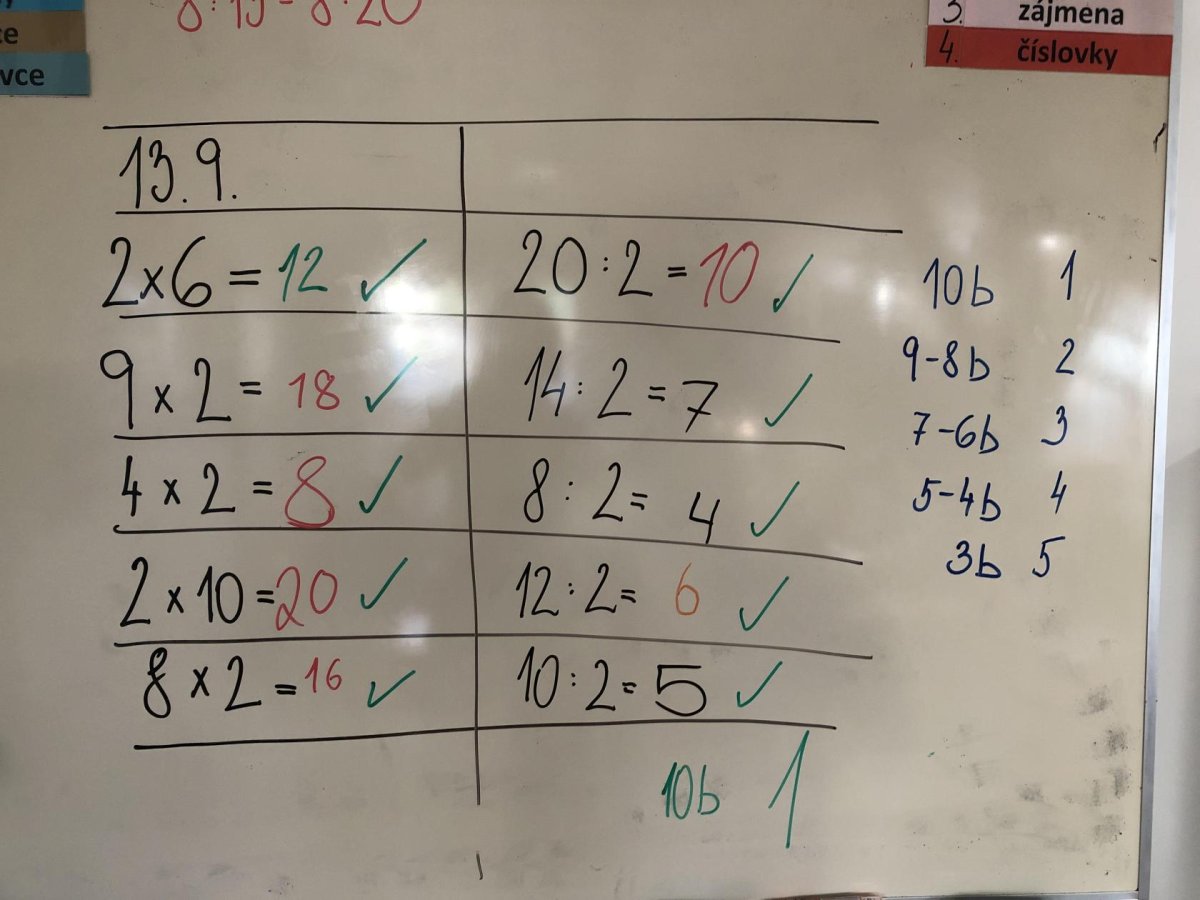 8:15 - 8:20
ce
vce
3. zájmena
4. číslovky
13.9.
2x6 = 12 ✓
20:2 = 10 ✓
9 x 2 = 18 ✓
14:2 = 7 ✓
4 x 2 = 8 ✓
8:2 = 4 ✓
2 x 10 = 20 ✓
12:2 = 6 ✓
8 x 2 = 16 ✓
10:2 = 5 ✓
10b 1
10b 1
9-8b 2
7-6b 3
5-4b 4
3b 5